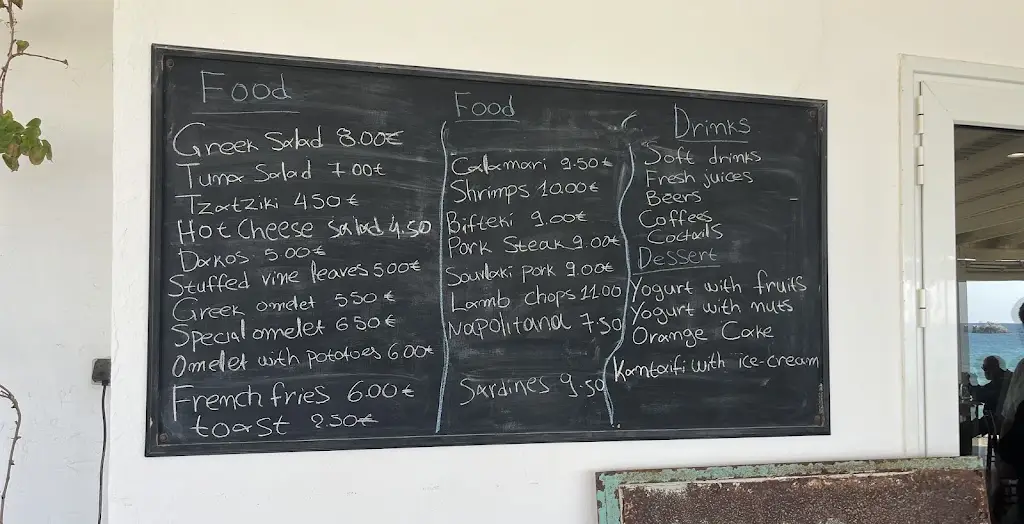 Food
Greek Salad 8.00€
Tuna Salad 7.00€
Tzatziki 4.50€
Hot Cheese Salad 4.50
Dakos 5.00€
Stuffed vine leaves 5.00€
Greek omelet 5.50€
Special omelet 6.50€
Omelet with potatoes 6.00€
French fries 6.00€
toast 2.50€
Food
Calamari 9.50€
Shrimps 10.00€
Bifteki 9.00€
Pork Steak 9.00€
Souvlaki pork 9.00€
Lamb chops 11.00
Napolitana 7.50
Sardines 9.50
Drinks
Soft drinks
Fresh juices
Beers
Coffees
Coctails
Dessert
Yogurt with fruits
Yogurt with nuts
Orange Cake
Kantaifi with ice-cream